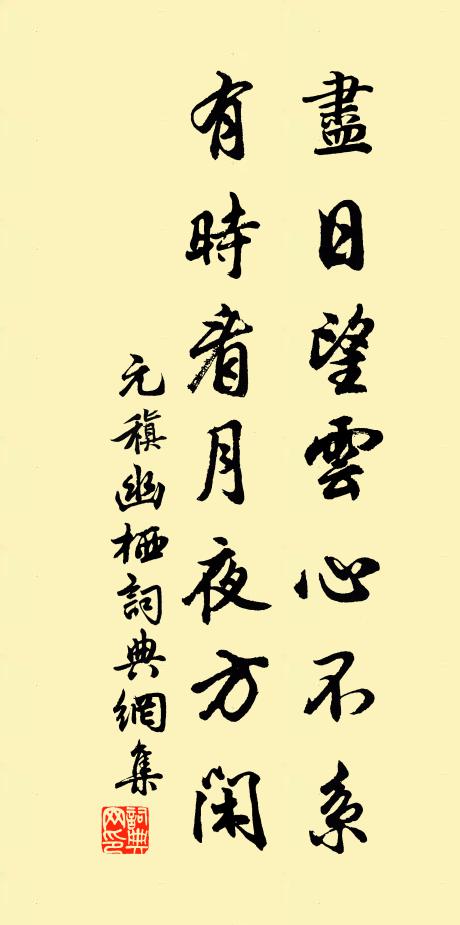 盡日望雲心不系
有時看月夜方閑
元稹幽栖詞典網集
詞典網印